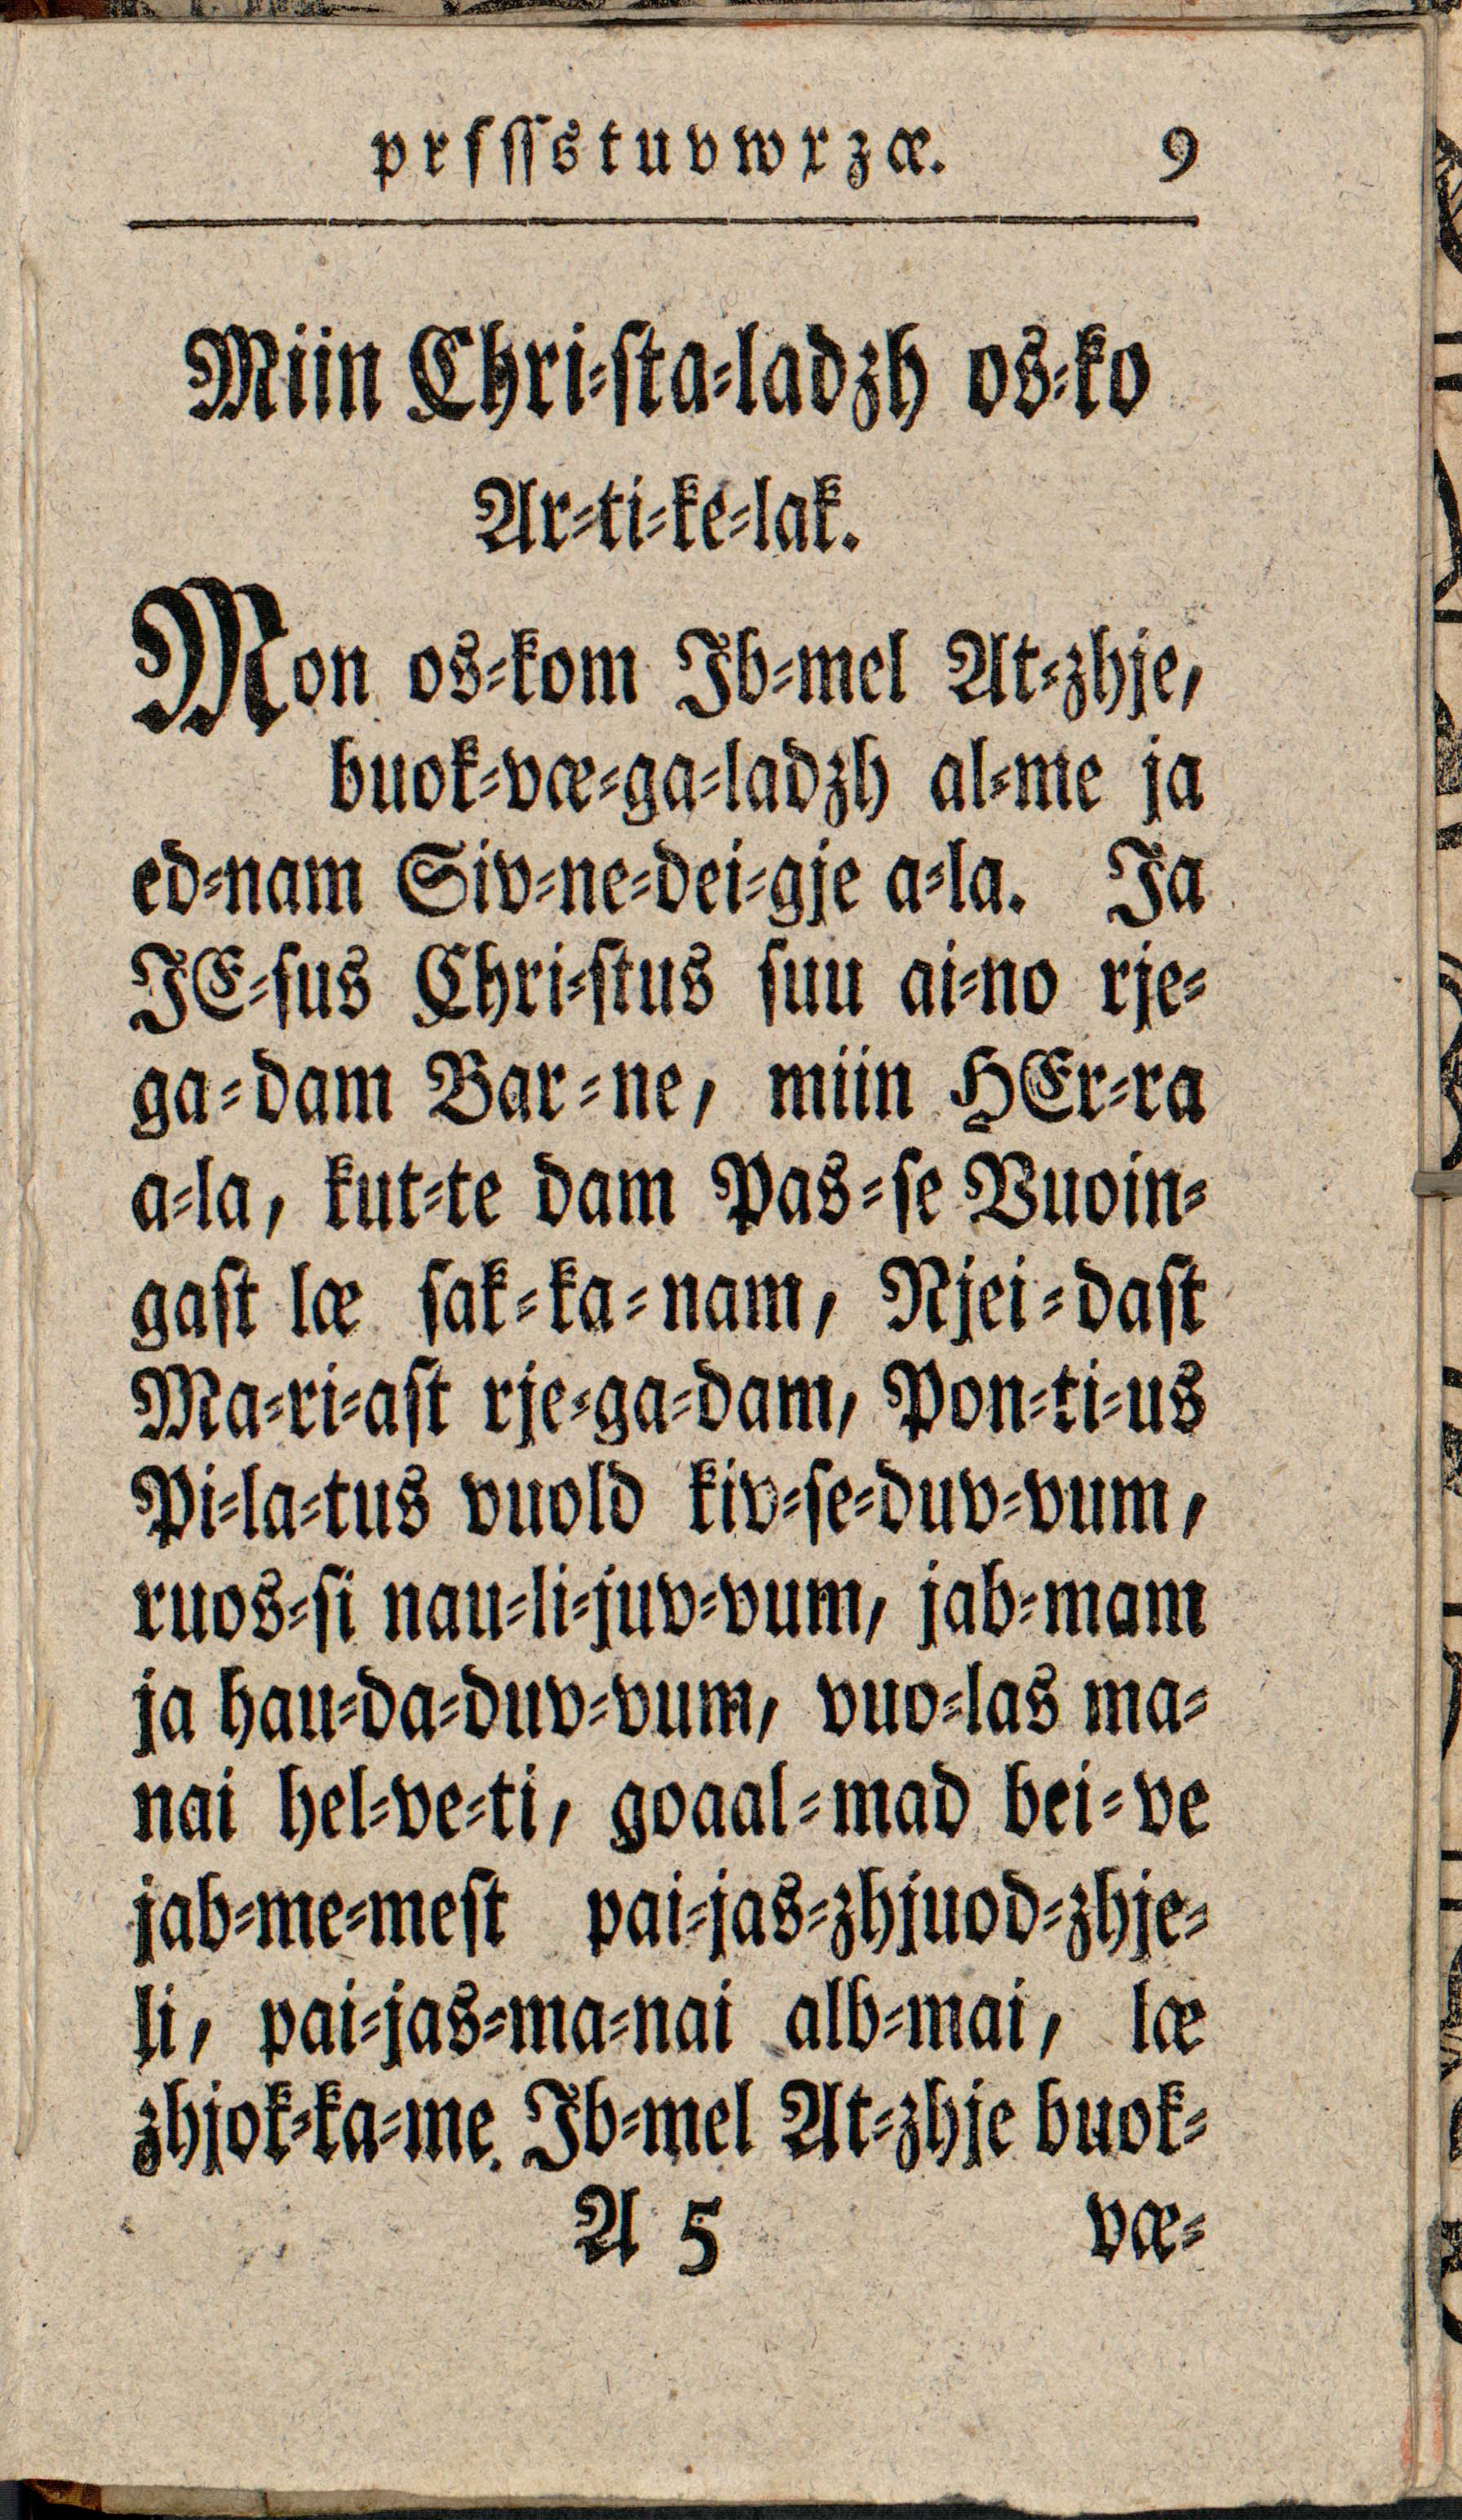 prſſſstuvwxzæ. 9
Miin Chri-ſta-ladzh os-ko
Ar-ti-ke-lak.
Mon os-kom Ib-mel At-zhje,
buok-væ-ga-ladzh al-me ja
ed-nam Siv-ne-dei-gje a-la. Ja
JE-ſus Chri-ſtus ſuu ai-no rje-
ga-dam Bar-ne, miin HEr-ra
a-la, kut-te dam Pas-ſe Vuoin-
gaſt læ ſak-ka-nam, Njei-daſt
Ma-ri-aſt rje-ga-dam, Pon-ti-us
Pi-la-tus vuold kiv-ſe-duv-vum,
ruos-ſi nau-li-juv-vum, jab-mam
ja hau-da-duv-vum, vuo-las ma-
nai hel-ve-ti, goaal-mad bei-ve
jab-me-meſt pai-jas-zhjuod-zhje-
li, pai-jas-ma-nai alb-mai, læ
zhjok-ka-me. Ib-mel At-zhje buok-
A 5 væ-